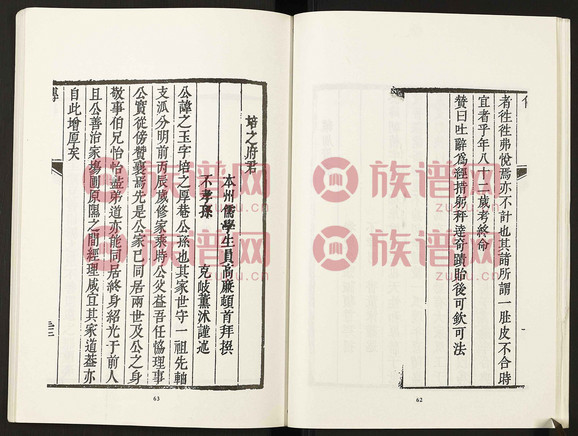 者往徃弗悅焉亦不計也其諸所謂一肚皮不合時
宜者乎年八十二歲考終命
贊曰吐辭爲經措躬秤達奇蹟貽後可欽可法
62
培之府君
本州儒學生員高廉頓首拜撰
不孝孫 克岐薰沐謹述
公諱之玉字培之厚巷公孫也其家世守一祖先軸
支派分明前丙辰歲修家乘時公父益吾任恊理事
公實從傍贊襄焉先是公家已同居兩世及公之身
敬事伯兄怡怡盡弟道亦能同居終身紹光于前人
且公善治家塲圃原隰之間經理咸宜其家道葢亦
自此增厚矣
63
族谱网
zupu.cn
族谱网
zupu.cn
族谱网
zupu.cn
族谱网
zupu.cn